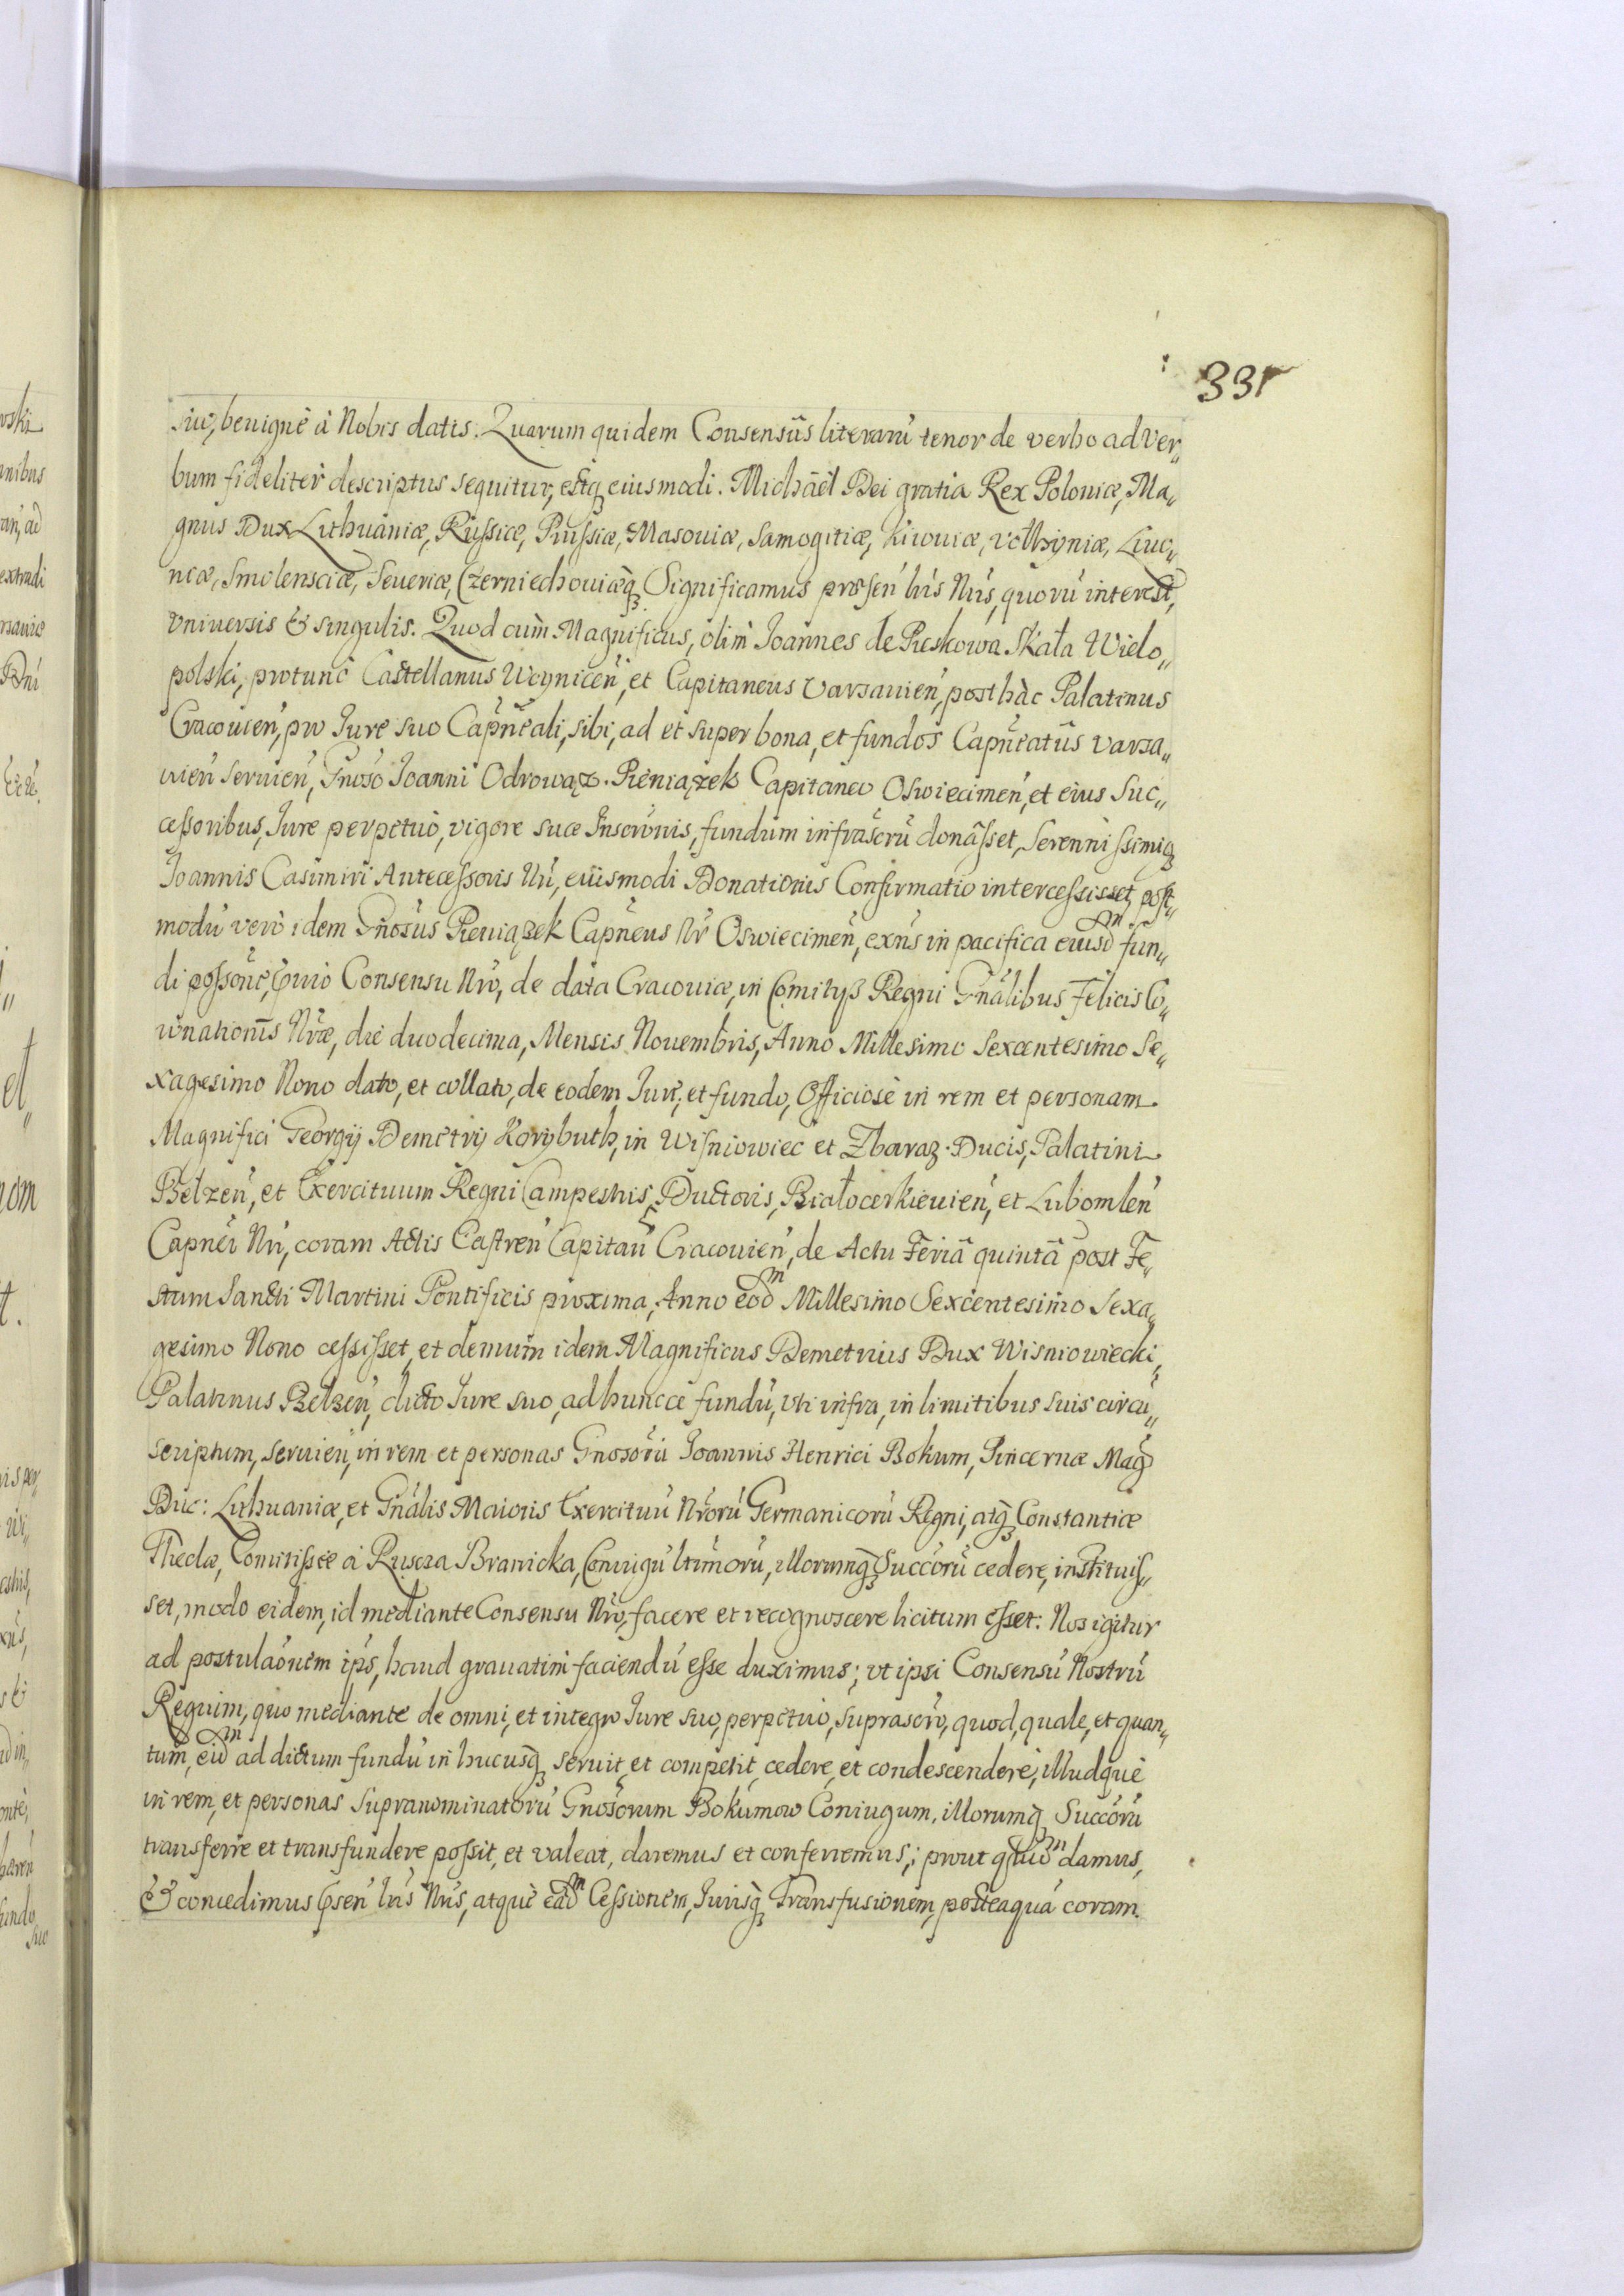 331
suo, benignè à Nobis datis. Quarum quidem Consensûs literarũ tenor de verbo ad Ver„
bum fideliter descriptus sequitur, estq₃ eiusmodi. Michäel Dei gratia Rex Poloniæ, Ma„
gnus Dux Lithuaniæ, Russiæ, Prussiæ, Masouiæ, Samogitiæ, Kiiouiæ, Volhyniæ, Liuo„
niæ, Smolensciæ, Seueriæ, Czerniechouiæq₃ Significamus præsen̄ lrīs Nrīs, quorũ interest,
vniuersis & singulis. Quod cùm Magnificus, olim Joannes de Pieskowa Skała Wielo„
polski, protunc Castellanus Woynicen̄, et Capitaneus Varsauien̄, posthàc Palatinus
Cracouien̄, pro Jure suo Capn̄eali, sibi, ad et super bona, et fundos Capn̄eatûs Varsa„
uien̄ seruien̄, Gnoso Joanni Odrowąz Pieniązek Capitaneo Oswiecimen̄, et eius Suc„
cessoribus, Jure perpetuo, vigore suæ Inscrōnis, fundum infrascrũ donâsset, Serennissimiq₃
Joannis Casimiri Antecessoris Nrī, euismodi Donationis Confirmatio intercessisset, post„
modũ verò idem Gn̄osus Pieniązek Capn̄eus Nr̄ Oswiecimen̄, exn̄s in pacifica eiusdm fun„
di possōne, prṽio Consensu Nrō, de data Cracouiæ, in Comitijs Regni Gn̄alibus Felicis Co„
ronationis Nræ, die duodecima, Mensis Nouembris, Anno Millesimo Sexcentesimo Se„
xagesimo Nono dato, et collato, de eodem Jure, et fundo, Officiosè in rem et personam
Magnifici Georgij Demetrij Korybuth, in Wisniowiec et Zbaraz Ducis, Palatini
Belzen̄, et Exercituum Regni Campestris Ductoris, Białocerkieuien̄, et Lubomlen̄
Capn̄ei Nrī, coram Actis Castren̄ Capitan̄ Cracouien̄, de Actu Feriâ quintâ post Fe„
stum Sancti Martini Pontificis proxima, Anno eodm Millesimo Sexcentesimo Sexa„
gesimo Nono cessisset, et demùm idem Magnificus Demetrius Dux Wisniowiecki,
Palatinus Belzen̄, dicto Jure suo, ad huncce fundũ, vti infra, in limitibus suis circũ„
scriptum, seruien̄, in rem et personas Gnosorũ Joannis Henrici Bokum, Pincernæ Mag
Duc: Lithuaniæ, et Gn̄alis Maioris Exercituũ Nrōrũ Germanicorũ Regni, atq₃ Constantiæ
Theclæ, Comitissæ à Ruscza Branicka, Coniugũ ltimorũ, illorumq₃ Succorũ cedere, instituis„
set, modo eidem, id mediante Consensu Nrō, facere et recognoscere licitum esset: Nos igitur
ad postulaōnem ips, haud grauatim faciendũ esse duximus; vt ipsi Consensũ Nostrũ
Regium, quo mediante de omni, et integro Jure suo, perpetuo, suprascrō, quod, quale, et quan„
tum, eidm ad dictum fundũ in hucusq₃ seruit, et competit, cedere, et condescendere, illudque
in rem, et personas supranominatorũ Gnosorum Bokumow Coniugum, illorumq₃ Succorũ
transferre et transfundere possit, et valeat, daremus et conferremus; prout quidm damus,
& concedimus prsen̄ lrīs Nrīs, atque eadm Cessionem, Jurisq₃ Transfusionem, posteaquã coram